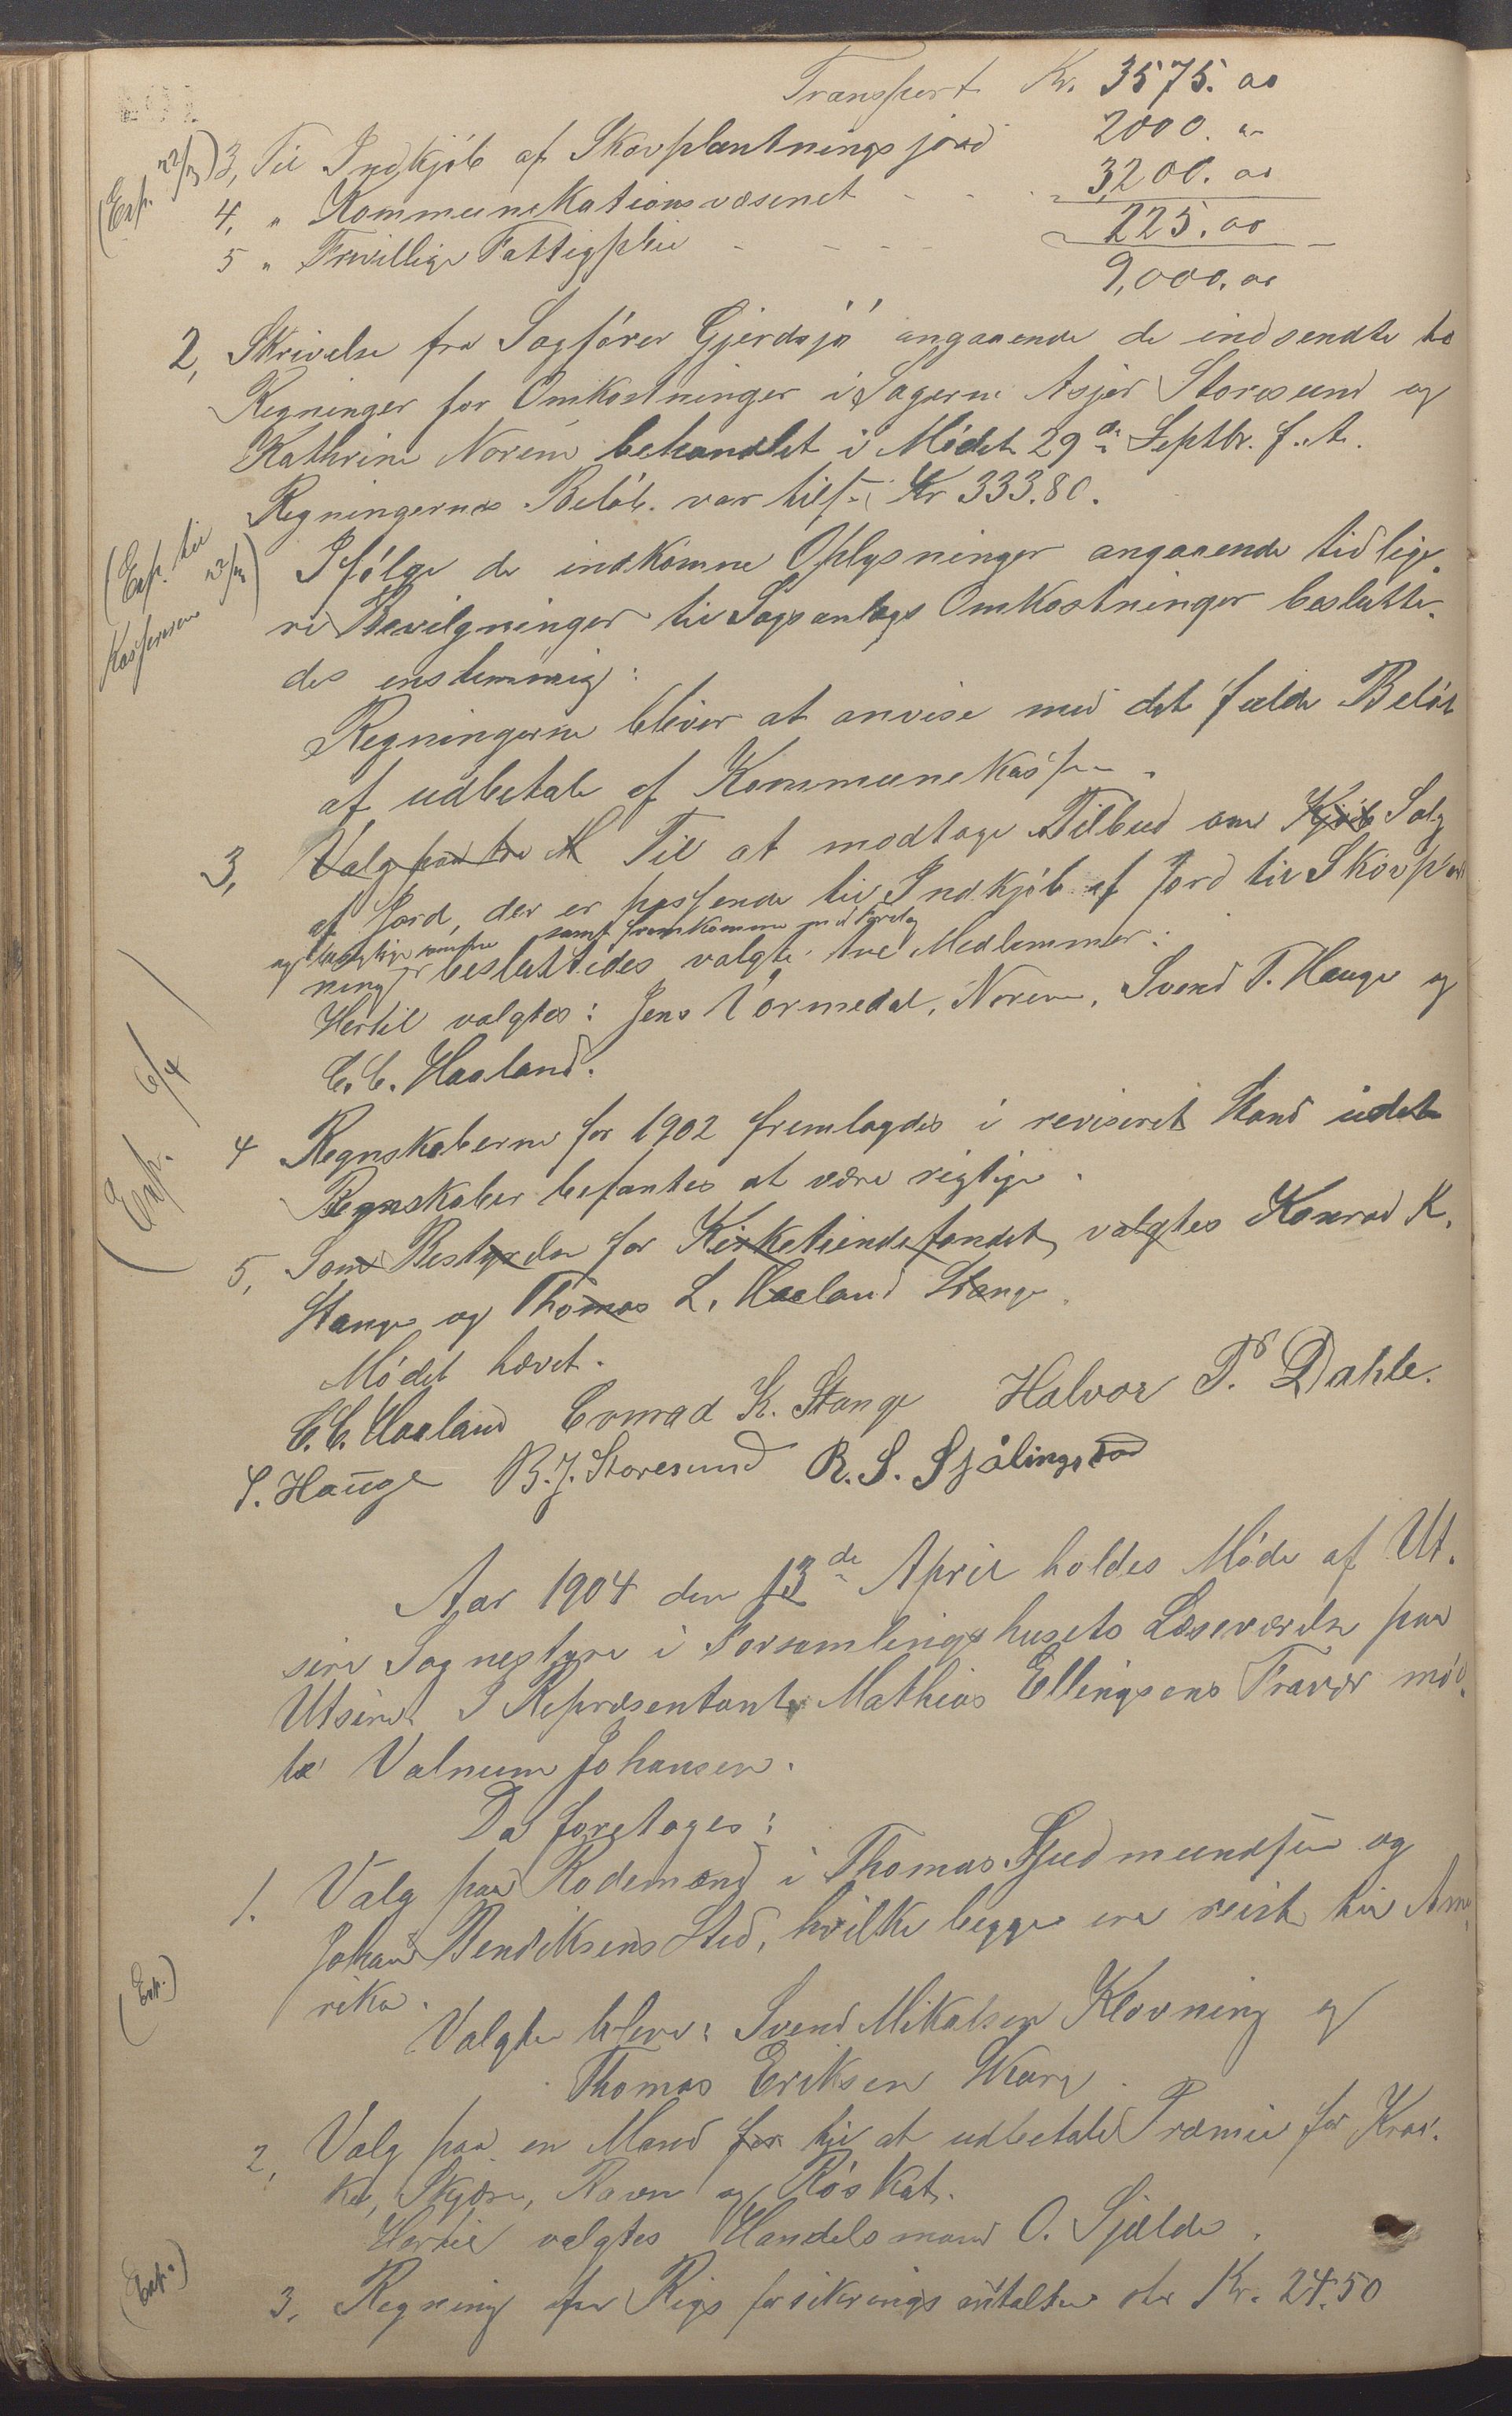 Transport Kr. 3575.00
(Exp. 22/3) 3, Til Indkjöb af Skovplantningsjord 2000. "
4, " Kommunikationsvæsenet - - - 3,200.00
5 " Frivillige Fattigpleie - - - - 225.00
9,000.00
2, Skrivelse fra Sagförer Gjerdsjö angaaende de indsendte to
Regninger for Omkostninger i Sagerne Asjer Storesund og
Kathrine Norem behandlet i Mödet 29de Septbr. f. A.
Regningernes Belöb var tils. Kr 333.80.
(Exp. til Kasserer 22/3)
Ifölge de indkomne Oplysninger angaaende tidlige-
re Bevilgninger til Sagsanlægs Omkostninger beslutte-
des enstemmig:
Regningerne bliver at anvise med det fulde Belöb
at udbetale af Kommunekassen.
3, Valg paa tre M Til at modtage Tilbud om Kjöb Salg
af Jord, der er passende til Indkjöb af Jord til Skovplant
og samt fremkomme med Forslag
ning besluttedes valgte tre Medlemmer:
Hertil valgtes: Jens Vormedal, Norem, Svend T. Hauge og
C. C. Haaland.
(Exp. 6/4)
4 Regnskaberne for 1902 fremlagdes i revideret Stand
Regnskaber befantes at være rigtige.
5, Som Bestyrelse for Kirketiendefondet valgtes Konrad K.
Stange og Thomas L. Haaland Stange
Mödet hævet.
C. C. Haaland Conrad K. Stange Halvor P. Dahle.
S. Hauge B. J. Storesund R. S. Sjölingstad
Aar 1904 den 13de April holdes Möde af Ut-
sire Sognestyre i Forsamlingshusets Læseværelse paa
Utsire. I Repræsentant Mathias Ellingsens Fravær möd-
te Valnum Johansen.
Da foretages:
1. Valg paa Rodemænd i Thomas Gudmundsen og
Johan Bendiksens Sted, hvilke begge ere reist til Ame-
rika.
(Exp.)
Valgte bleve: Svend Mikalsen Klovning og
Thomas Eriksen Skare.
2, Valg paa en Mand for til at udbetale Præmie for Kraa-
ke, Skjære, Ravn og Röskat.
Hertil valgtes Handelsmand O. Sjælde.
(Exp.)
3, Regning fra Rigsforsikringsanstalten stor Kr. 24.50